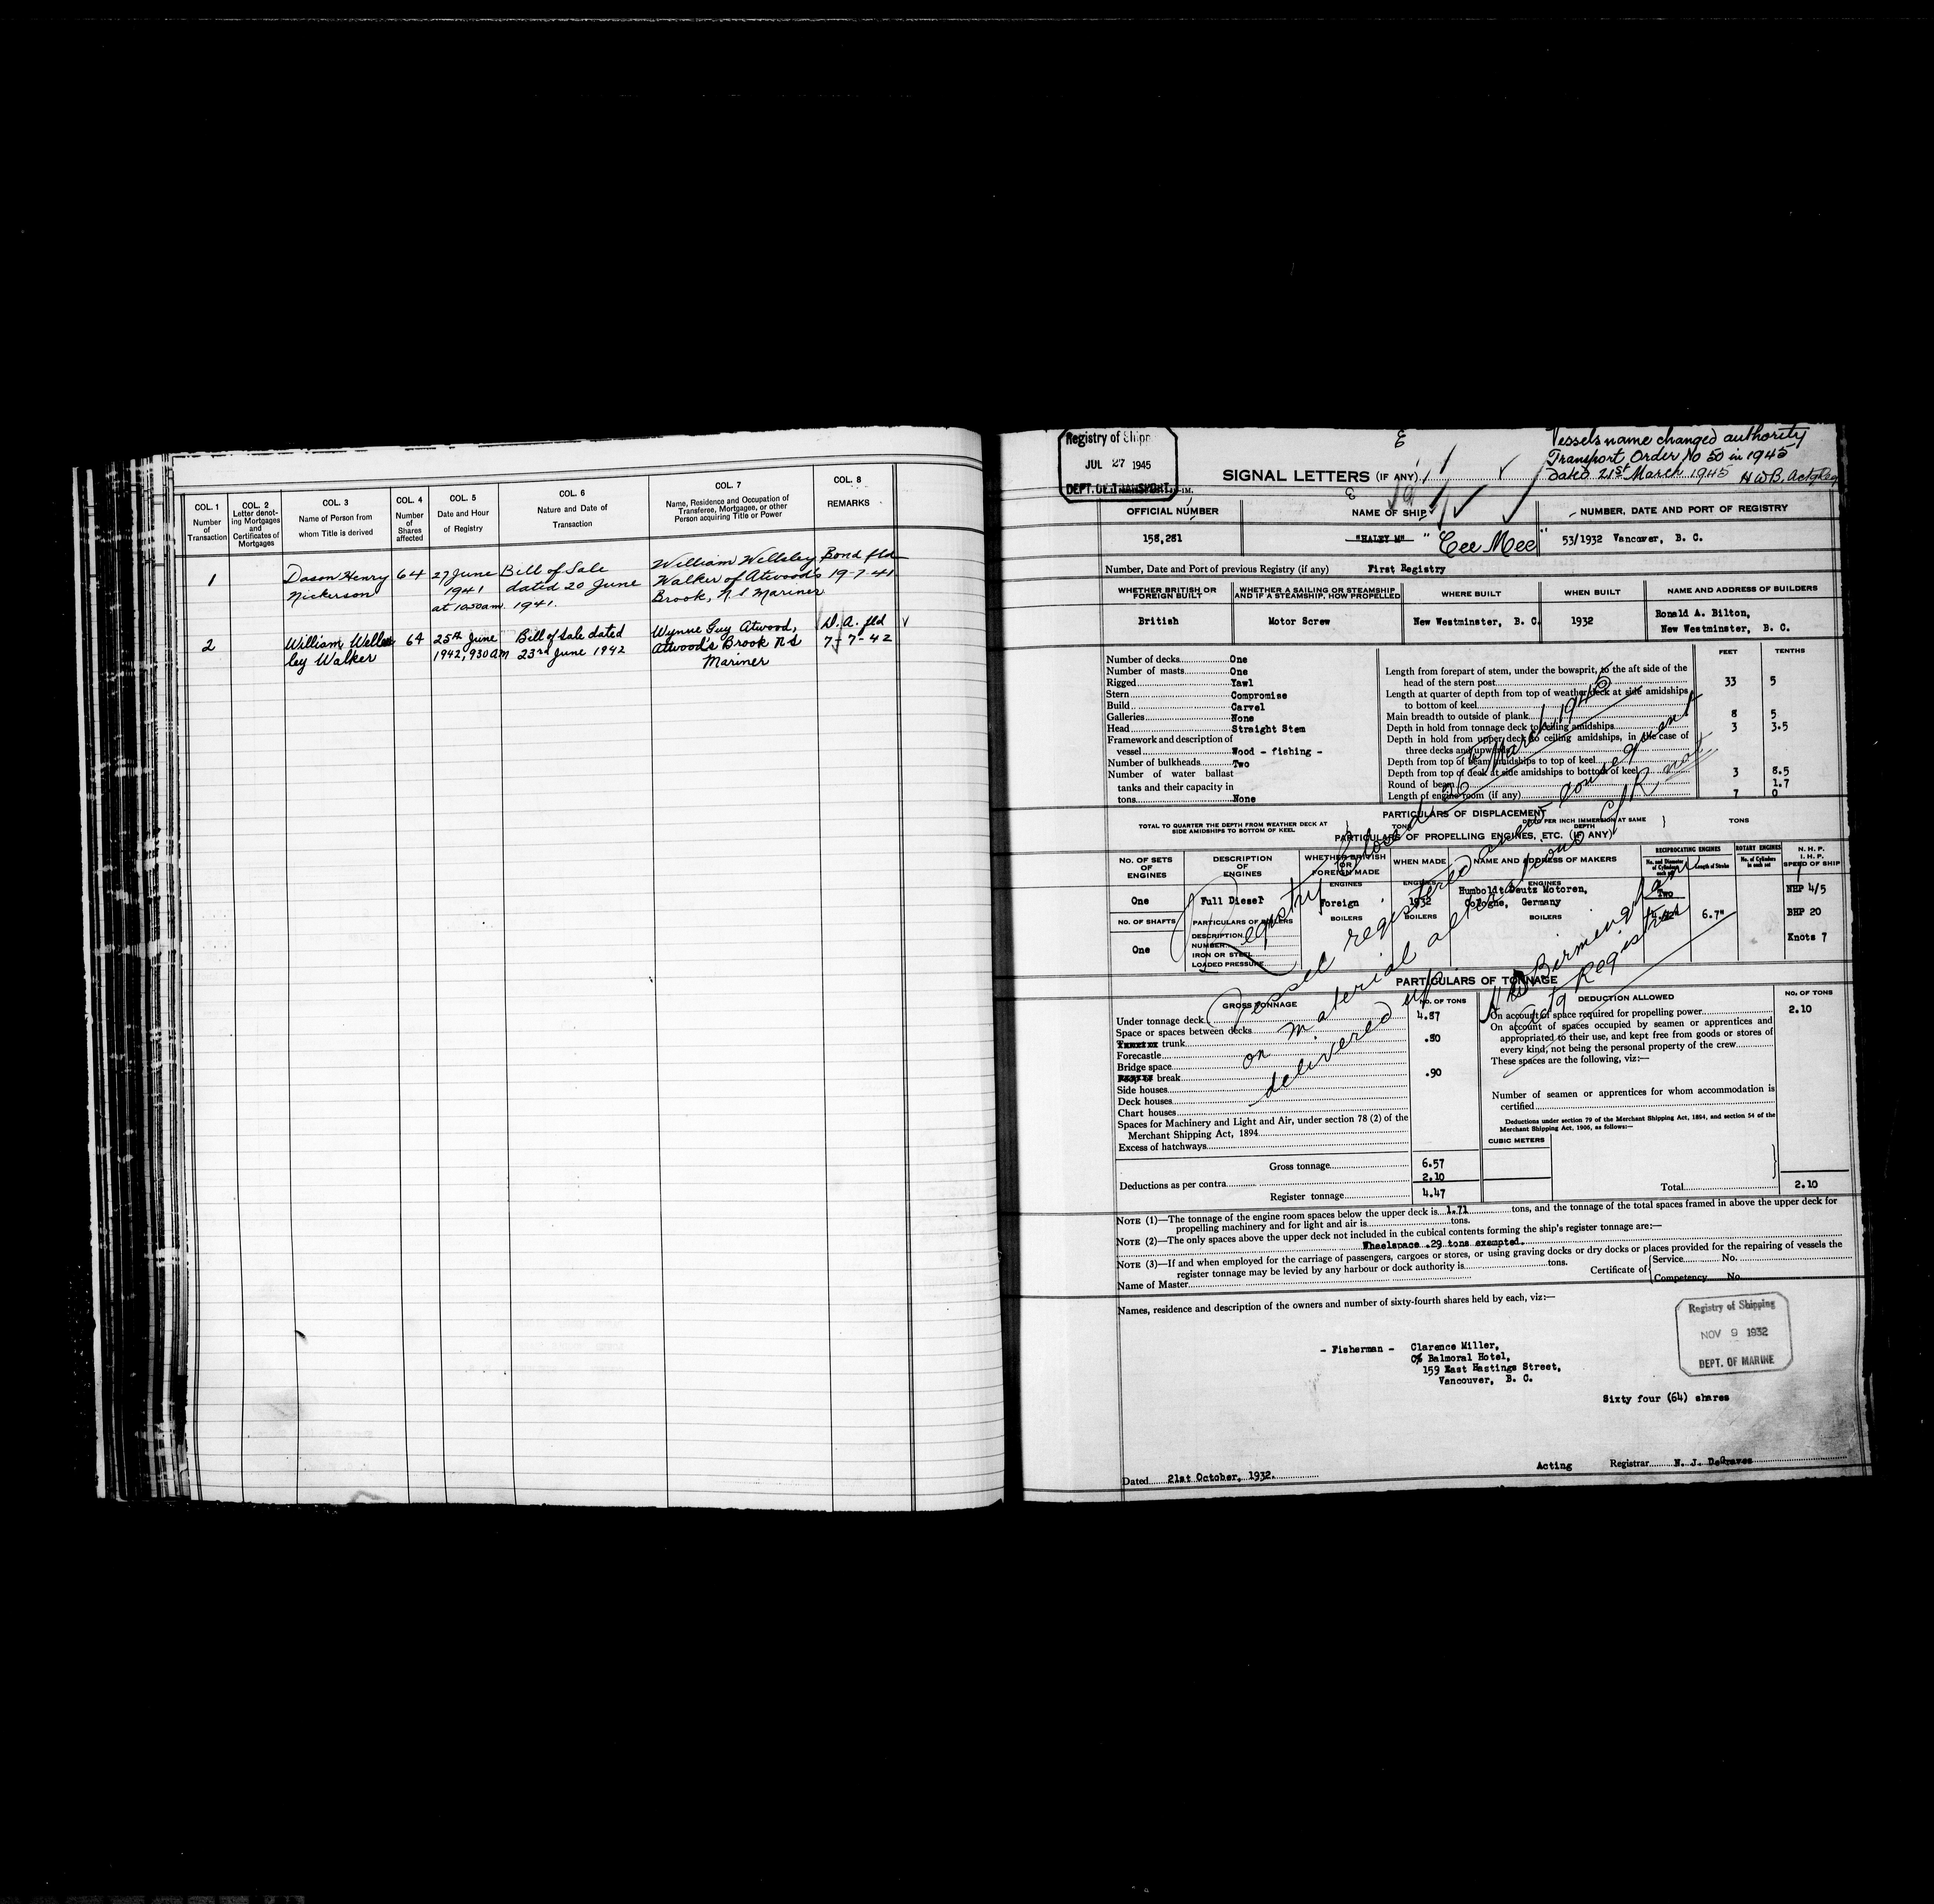 COL. 1
Number
of
Transaction
COL. 2
Letter denot-
ing Mortgages
and
Certificates of
Mortgages
COL. 3
Name of Person from
whom Title is derived
COL. 4
Number
of
Shares
affected
COL. 5
Date and Hour
of Registry
COL. 6
Nature and Date of
Transaction
COL. 7
Name, Residence and Occupation of
Transferee, Mortgagee, or other
Person acquiring Title or Power
COL. 8
REMARKS
1
Dason Henry
Nickerson
64
27 June
1941
at 10.50 am.
Bill of Sale
dated 20 June
1941.
William Wellsley
Walker of Atwood's
Brook, N.S Mariner
Bond fld
19-7-41
2
William Welles
ley Walker
64
25th June
1942, 930 AM
Bill of Sale dated
23rd June 1942
Wynne Guy Atwood,
Atwood's Brook N S
Mariner
D.A. fld
7-7-42
Registry of Shipp
JUL 27 1945
DEPT. OF TRANSPORT
Vessels name changed authority
Transport Order No 50 in 1945
Dated 21st March 1945 HWB, Actg Reg
SIGNAL LETTERS (IF ANY)
OFFICIAL NUMBER
NAME OF SHIP
NUMBER, DATE AND PORT OF REGISTRY
158,281
"HALEY M" "Cee Mee"
53/1932 Vancover, B. C.
Number, Date and Port of previous Registry (if any) First Registry
WHETHER BRITISH OR
FOREIGN BUILT
WHETHER A SAILING OR STEAMSHIP
AND IF A STEAMSHIP, HOW PROPELLED
WHERE BUILT
WHEN BUILT
NAME AND ADDRESS OF BUILDERS
British
Motor Screw
New Westminster, B. C.
1932
Ronald A. Bilton,
New Westminster, B. C.
Number of decks One
Number of masts One
Rigged Yawl
Stern Compromise
Build Carvel
Galleries None
Head Straight Stem
Framework and description of
vessel Wood - fishing -
Number of bulkheads Two
Number of water ballast
tanks and their capacity in
tons None
FEET TENTHS
Length from forepart of stem, under the bowsprit, to the aft side of the
head of the stern post 33 5
Length at quarter of depth from top of weather deck at side amidships
to bottom of keel
Main breadth to outside of plank 8 5
Depth in hold from tonnage deck to ceiling amidships 3 3.5
Depth in hold from upper deck to ceiling amidships, in the case of
three decks and upwards
Depth from top of beam amidships to top of keel
Depth from top of deck at side amidships to bottom of keel 3 8.5
Round of beam 1.7
Length of engine room (if any) 7 0
PARTICULARS OF DISPLACEMENT
TOTAL TO QUARTER THE DEPTH FROM WEATHER DECK AT
SIDE AMIDSHIPS TO BOTTOM OF KEEL
TONS
DITTO PER INCH IMMERSION AT SAME
DEPTH
TONS
PARTICULARS OF PROPELLING ENGINES, ETC. (IF ANY)
NO. OF SETS
OF
ENGINES
DESCRIPTION
OF
ENGINES
WHETHER BRITISH
OR
FOREIGN MADE
WHEN MADE
NAME AND ADDRESS OF MAKERS
RECIPROCATING ENGINES
No. and Diameter
of Cylinders
each set
Length of Stroke
ROTARY ENGINES
No. of Cylinders
in each set
N. H. P.
I. H. P.
SPEED OF SHIP
ENGINES
ENGINES
ENGINES
One
Full Diesel
Foreign
1932
Humboldt-Deutz Motoren,
Cologne, Germany
Two
6.7"
NHP 4/5
BHP 20
Knots 7
NO. OF SHAFTS
One
PARTICULARS OF BOILERS
DESCRIPTION
NUMBER
IRON OR STEEL
LOADED PRESSURE
BOILERS
BOILERS
BOILERS
Registry closed 26th March 1945
Vessel registered anew consequent
on material alterations C/R not
delivered up
H W Birmingham
Actg Registrar
PARTICULARS OF TONNAGE
GROSS TONNAGE
NO. OF TONS
Under tonnage deck 4.87
Space or spaces between decks
trunk .80
Forecastle
Bridge space
Poop or break .90
Side houses
Deck houses
Chart houses
Spaces for Machinery and Light and Air, under section 78 (2) of the
Merchant Shipping Act, 1894
Excess of hatchways
Gross tonnage 6.57
Deductions as per contra 2.10
Register tonnage 4.47
DEDUCTION ALLOWED
NO. OF TONS
On account of space required for propelling power 2.10
On account of spaces occupied by seamen or apprentices and
appropriated to their use, and kept free from goods or stores of
every kind, not being the personal property of the crew
These spaces are the following, viz:—
Number of seamen or apprentices for whom accommodation is
certified
Deductions under section 79 of the Merchant Shipping Act, 1894, and section 54 of the
Merchant Shipping Act, 1906, as follows:—
CUBIC METERS
Total 2.10
NOTE (1)—The tonnage of the engine room spaces below the upper deck is 1.71 tons, and the tonnage of the total spaces framed in above the upper deck for
propelling machinery and for light and air is tons.
NOTE (2)—The only spaces above the upper deck not included in the cubical contents forming the ship's register tonnage are:—
Wheelspace .29 tons exempted.
NOTE (3)—If and when employed for the carriage of passengers, cargoes or stores, or using graving docks or dry docks or places provided for the repairing of vessels the
register tonnage may be levied by any harbour or dock authority is tons.
Name of Master
Certificate of
Service No.
Competency No
Names, residence and description of the owners and number of sixty-fourth shares held by each, viz:—
Registry of Shipping
NOV 9 1932
DEPT. OF MARINE
- Fisherman - Clarence Miller,
C/o Balmoral Hotel,
159 East Hastings Street,
Vancouver, B. C.
Sixty four (64) shares
Dated 21st October, 1932.
Acting Registrar N. J. DeGraves